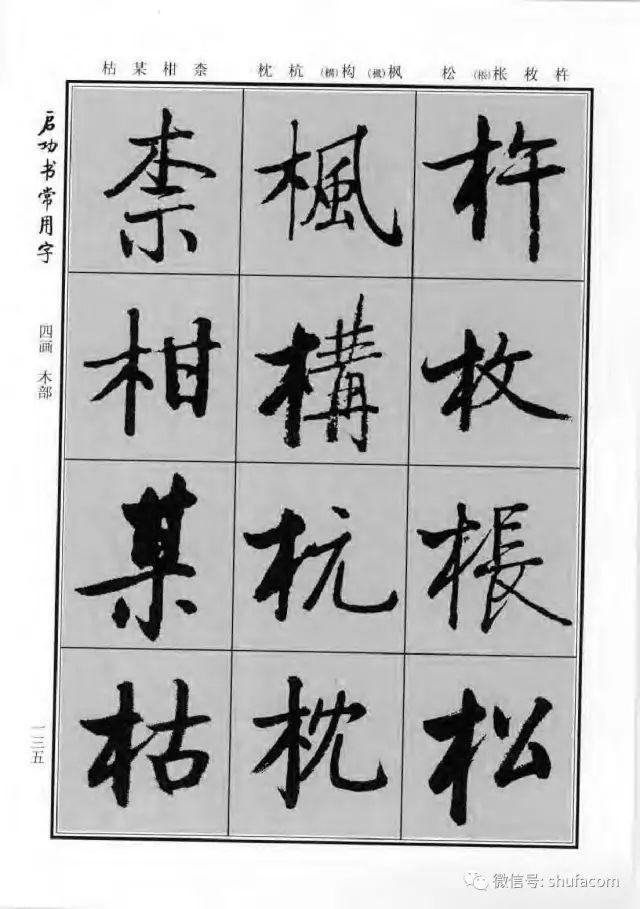 杵 枚 枨(棖) 松
枫(楓) 构(構) 杭 枕
柰 柑 某 枯
杵枚棖松
楓構杭枕
柰柑某枯
启功书常用字
四画 木部
一三五
微信号: shufacom